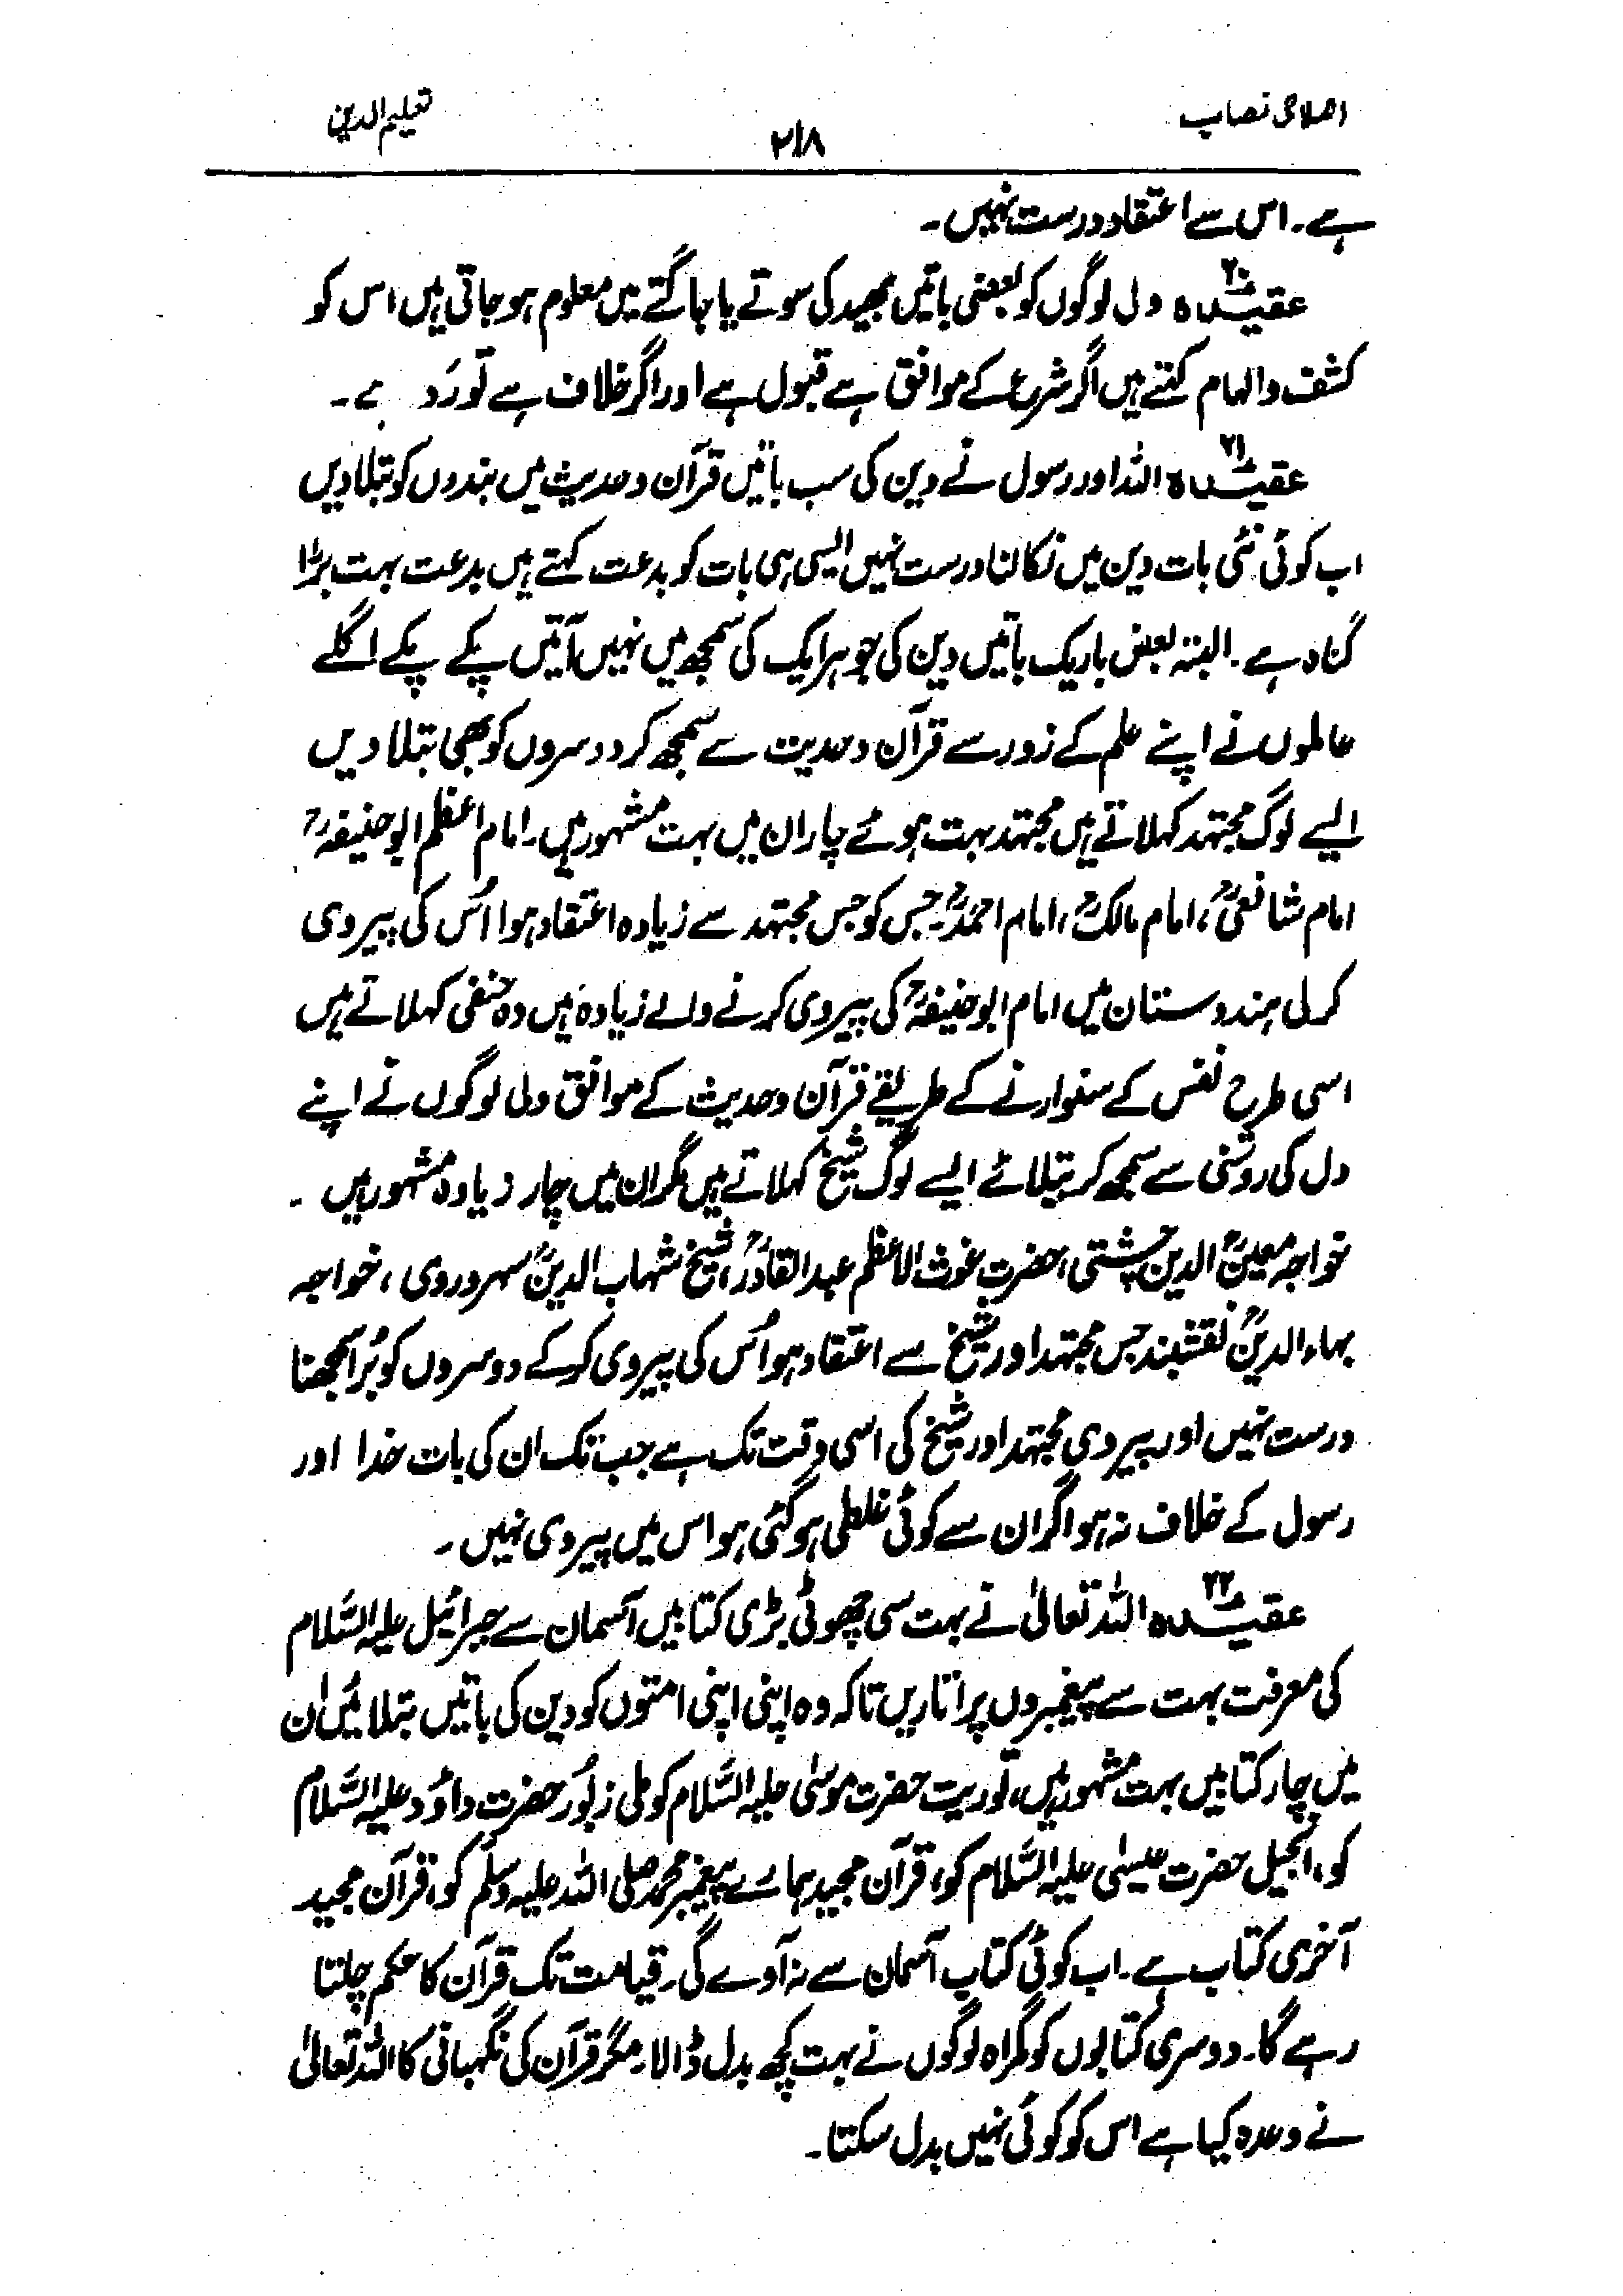 اصلاحی نصاب
۲۱۸
تعلیم الدین
ہے۔ اس سے اعتقاد درست نہیں۔
عقیدہ ۲۰ ولی لوگوں کو بعضی باتیں بھید کی سوتے یا جاگتے میں معلوم ہو جاتی ہیں اس کو
کشف و الہام کہتے ہیں اگر شرع کے موافق ہے قبول ہے اور اگر خلاف ہے تو رَد ہے۔
عقیدہ ۲۱ اللہ اور رسول نے دین کی سب باتیں قرآن و حدیث میں بندوں کو بتلا دیں
اب کوئی نئی بات دین میں نکالنا درست نہیں ایسی ہی بات کو بدعت کہتے ہیں بدعت بہت بڑا
گناہ ہے۔ البتہ بعض باریک باتیں دین کی جو ہر ایک کی سمجھ میں نہیں آتیں پکے پکے اگلے
عالموں نے اپنے علم کے زور سے قرآن و حدیث سے سمجھ کر دوسروں کو بھی بتلا دیں
ایسے لوگ مجتہد کہلاتے ہیں مجتہد بہت ہوئے چار ان میں بہت مشہور ہیں۔ امام اعظم ابو حنیفہؒ
امام شافعیؒ، امام مالکؒ، امام احمدؒ۔ جس کو جس مجتہد سے زیادہ اعتقاد ہوا اُس کی پیروی
کر لی ہندوستان میں امام ابو حنیفہؒ کی پیروی کرنے والے زیادہ ہیں وہ حنفی کہلاتے ہیں
اسی طرح نفس کے سنوارنے کے طریقے قرآن و حدیث کے موافق ولی لوگوں نے اپنے
دل کی روشنی سے سمجھ کر بتلائے ایسے لوگ شیخ کہلاتے ہیں مگر ان میں چار زیادہ مشہور ہیں۔
خواجہ معینؒ الدین چشتی، حضرت غوث الاعظم عبد القادرؒ، شیخ شہاب الدینؒ سہروردی، خواجہ
بہاء الدینؒ نقشبند جس مجتہد اور شیخ سے اعتقاد ہو اُس کی پیروی کر کے دوسروں کو بُرا سمجھنا
درست نہیں اور پیروی مجتہد اور شیخ کی اسی وقت تک ہے جب تک ان کی بات خدا اور
رسول کے خلاف نہ ہو اگر ان سے کوئی غلطی ہو گئی ہو اس میں پیروی نہیں۔
عقیدہ ۲۲ اللہ تعالیٰ نے بہت سی چھوٹی بڑی کتابیں آسمان سے جبرائیل علیہ السَّلام
کی معرفت بہت سے پیغمبروں پر اتاریں تاکہ وہ اپنی اپنی امتوں کو دین کی باتیں بتلائیں ان
میں چار کتابیں بہت مشہور ہیں، توریت حضرت موسیٰ علیہ السَّلام کو ملی زبُور حضرت داؤد علیہ السَّلام
کو، انجیل حضرت عیسٰی علیہ السَّلام کو، قرآن مجید ہمارے پیغمبر محمد صلی اللہ علیہ وسلّم کو، قرآن مجید
آخری کتاب ہے۔ اب کوئی کتاب آسمان سے نہ آوے گی۔ قیامت تک قرآن کا حکم چلتا
رہے گا۔ دوسری کتابوں کو گمراہ لوگوں نے بہت کچھ بدل ڈالا۔ مگر قرآن کی نگہبانی کا اللہ تعالیٰ
نے وعدہ کیا ہے اس کو کوئی نہیں بدل سکتا۔